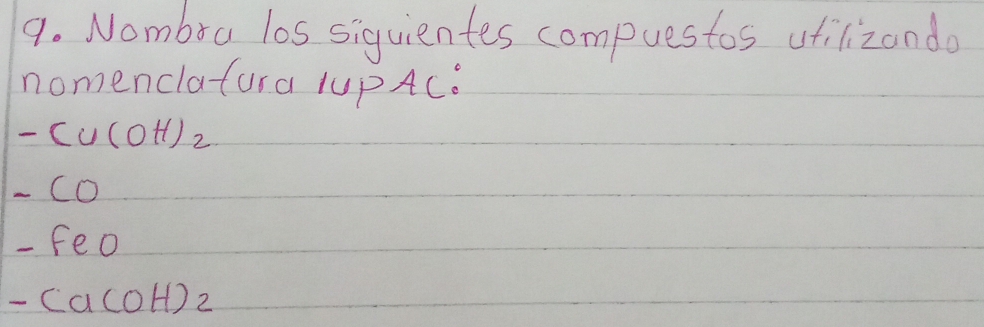 9. Nombra los siguientes compuestos utilizando
nomenclatura IUPAC:
- Cu(OH)2
- CO
- FeO
- Ca(OH)2